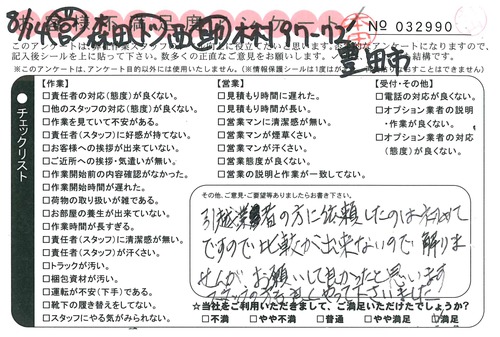 No 032990
8/14
豊田市
記入後シールを上に貼って下さい。
※このアンケートは、アンケート目的以外には使用いたしません。
チェックリスト
【作業】
□責任者の対応(態度)が良くない。
□他のスタッフの対応(態度)が良くない。
□作業を見ていて不安がある。
□責任者(スタッフ)に好感が持てない。
□お客様への挨拶が出来ていない。
□ご近所への挨拶・気遣いが無い。
□作業開始前の内容確認がなかった。
□作業開始時間が遅れた。
□荷物の取り扱いが雑である。
□お部屋の養生が出来ていない。
□作業時間が長すぎる。
□責任者(スタッフ)に清潔感が無い。
□責任者(スタッフ)が汗くさい。
□トラックが汚い。
□梱包資材が汚い。
□運転が不安(下手)である。
□靴下の履き替えをしてない。
□スタッフにやる気がみられない。
【営業】
□見積もり時間に遅れた。
□見積もり時間が長い。
□営業マンに清潔感が無い。
□営業マンが煙草くさい。
□営業マンが汗くさい。
□営業態度が良くない。
□営業の説明と作業が一致してない。
【受付・その他】
□電話の対応が良くない。
□オプション業者の説明
・作業が良くない。
□オプション業者の対応
(態度)が良くない。
その他、ご意見・ご要望等ありましたらお書き下さい。
引越業者の方に依頼したのは初めて
ですので比較が出来ないので解りま
せんが お願いして良かったと思います
☆当社をご利用いただきまして、ご満足いただけたでしょうか?
□不満 □やや不満 □普通 □やや満足 □満足